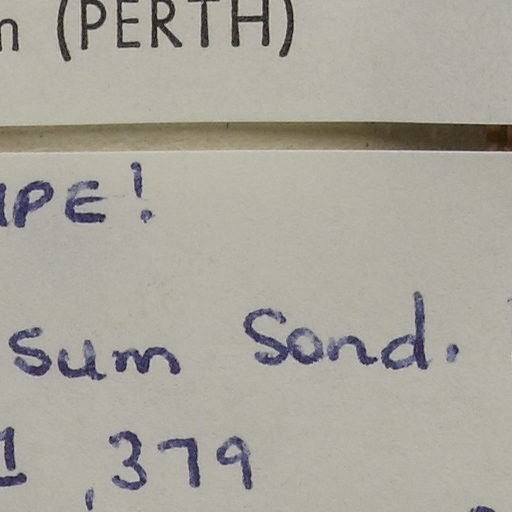 n (PERTH)
IPE!
sum Sond.
1, 379